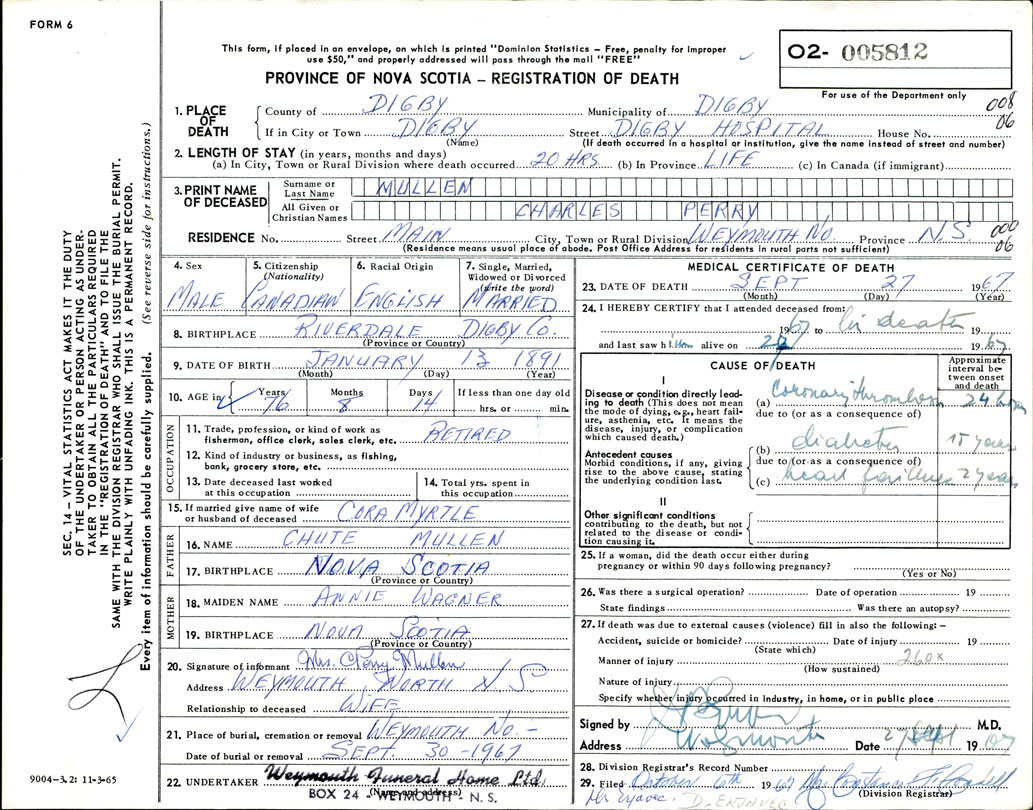 FORM 6
This form, if placed in an envelope, on which is printed "Dominion Statistics – Free, penalty for improper
use $50," and properly addressed will pass through the mail "FREE"
O2- 005812
PROVINCE OF NOVA SCOTIA – REGISTRATION OF DEATH
For use of the Department only
008
06
1. PLACE OF DEATH
County of DIGBY Municipality of DIGBY
If in City or Town DIGBY Street DIGBY HOSPITAL House No.
(Name) (If death occurred in a hospital or institution, give the name instead of street and number)
2. LENGTH OF STAY (in years, months and days)
(a) In City, Town or Rural Division where death occurred 20 HRS (b) In Province LIFE (c) In Canada (if immigrant)
3. PRINT NAME OF DECEASED
Surname or Last Name MULLEN
All Given or Christian Names CHARLES PERRY
RESIDENCE No. Street MAIN City, Town or Rural Division WEYMOUTH NO. Province N.S. 000
06
(Residence means usual place of abode. Post Office Address for residents in rural parts not sufficient)
SEC. 14 – VITAL STATISTICS ACT MAKES IT THE DUTY
OF THE UNDERTAKER OR PERSON ACTING AS UNDER-
TAKER TO OBTAIN ALL THE PARTICULARS REQUIRED
IN THE "REGISTRATION OF DEATH" AND TO FILE THE
SAME WITH THE DIVISION REGISTRAR WHO SHALL ISSUE THE BURIAL PERMIT.
WRITE PLAINLY WITH UNFADING INK. THIS IS A PERMANENT RECORD.
Every item of information should be carefully supplied. (See reverse side for instructions.)
4. Sex
MALE
5. Citizenship
(Nationality)
CANADIAN
6. Racial Origin
ENGLISH
7. Single, Married,
Widowed or Divorced
(write the word)
MARRIED
8. BIRTHPLACE RIVERDALE DIGBY CO.
(Province or Country)
9. DATE OF BIRTH JANUARY 13 1891
(Month) (Day) (Year)
10. AGE in Years 76 Months 8 Days 14 If less than one day old
hrs. or min.
OCCUPATION
11. Trade, profession, or kind of work as
fisherman, office clerk, sales clerk, etc. RETIRED
12. Kind of industry or business, as fishing,
bank, grocery store, etc.
13. Date deceased last worked
at this occupation
14. Total yrs. spent in
this occupation
15. If married give name of wife
or husband of deceased CORA MYRTLE
FATHER
16. NAME CHUTE MULLEN
17. BIRTHPLACE NOVA SCOTIA
(Province or Country)
MOTHER
18. MAIDEN NAME ANNIE WAGNER
19. BIRTHPLACE NOVA SCOTIA
(Province or Country)
20. Signature of informant Mrs. C Perry Mullen
Address WEYMOUTH NORTH N.S
Relationship to deceased WIFE
21. Place of burial, cremation or removal WEYMOUTH NO.-
Date of burial or removal SEPT. 30-1967
22. UNDERTAKER Weymouth Funeral Home Ltd.
(Name and address)
BOX 24 - WEYMOUTH - N. S.
9004-3.2: 11-3-65
MEDICAL CERTIFICATE OF DEATH
23. DATE OF DEATH SEPT 27 1967
(Month) (Day) (Year)
24. I HEREBY CERTIFY that I attended deceased from:
1967 to his death 19
and last saw him alive on 1967
CAUSE OF DEATH
Approximate
interval be-
tween onset
and death
I
Disease or condition directly lead-
ing to death (This does not mean
the mode of dying, e.g., heart fail-
ure, asthenia, etc. It means the
disease, injury, or complication
which caused death.)
(a) Coronary thrombosis 24 hours
due to (or as a consequence of)
(b) diabetes 15 years
Antecedent causes
Morbid conditions, if any, giving
rise to the above cause, stating
the underlying condition last.
due to (or as a consequence of)
(c) heart failure 2 years
II
Other significant conditions
contributing to the death, but not
related to the disease or condi-
tion causing it.
25. If a woman, did the death occur either during
pregnancy or within 90 days following pregnancy?
(Yes or No)
26. Was there a surgical operation? Date of operation 19
State findings Was there an autopsy?
27. If death was due to external causes (violence) fill in also the following: –
Accident, suicide or homicide? Date of injury 19
(State which)
Manner of injury 260x
(How sustained)
Nature of injury
Specify whether injury occurred in industry, in home, or in public place
Signed by M.D.
Address Weymouth Date 27 Sept 1967
28. Division Registrar's Record Number
29. Filed October 6th 1967
(Division Registrar)